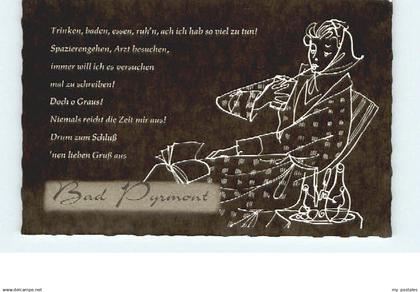 Trinken, baden, essen, ruh'n, ach ich hab so viel zu tun!
Spazierengehen, Arzt besuchen,
immer will ich es versuchen
mal zu schreiben!
Doch o Graus!
Niemals reicht die Zeit mir aus!
Drum zum Schluß
'nen lieben Gruß aus
Bad Pyrmont
www.delcampe.net
my pastales